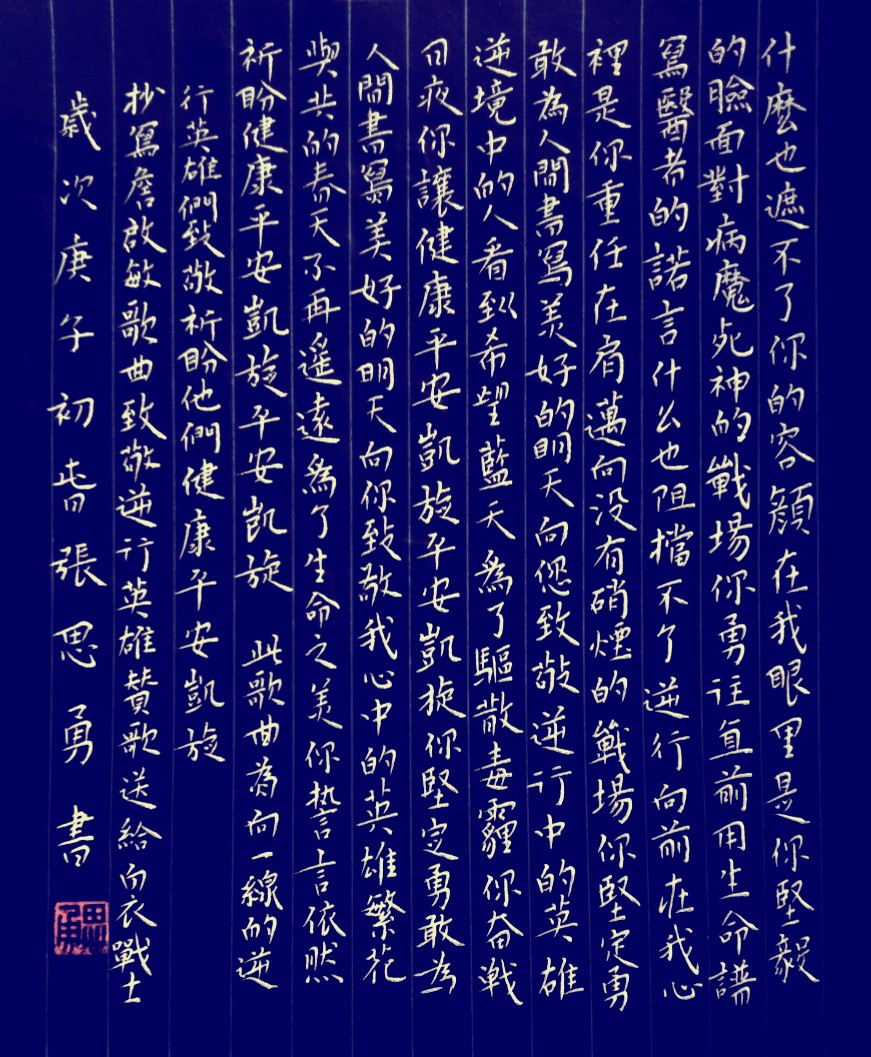 什麽也遮不了你的容顔在我眼里是你堅毅
的臉面對病魔死神的戰場你勇往直前用生命譜
寫醫者的諾言什么也阻擋不了逆行向前在我心
裡是你重任在肩邁向没有硝煙的戰場你堅定勇
敢為人間書寫美好的明天向您致敬逆行中的英雄
逆境中的人看到希望藍天為了驅散毒霾你奋戰
日夜你讓健康平安凱旋平安凱旋你堅定勇敢為
人間書寫美好的明天向你致敬我心中的英雄繁花
與共的春天不再遥遠為了生命之美你誓言依然
祈盼健康平安凱旋平安凯旋 此歌曲為向一線的逆
行英雄們致敬祈盼他們健康平安凱旋
抄寫詹啟敏歌曲致敬逆行英雄贊歌送給白衣戰士
歲次庚子初春張思勇書
思勇